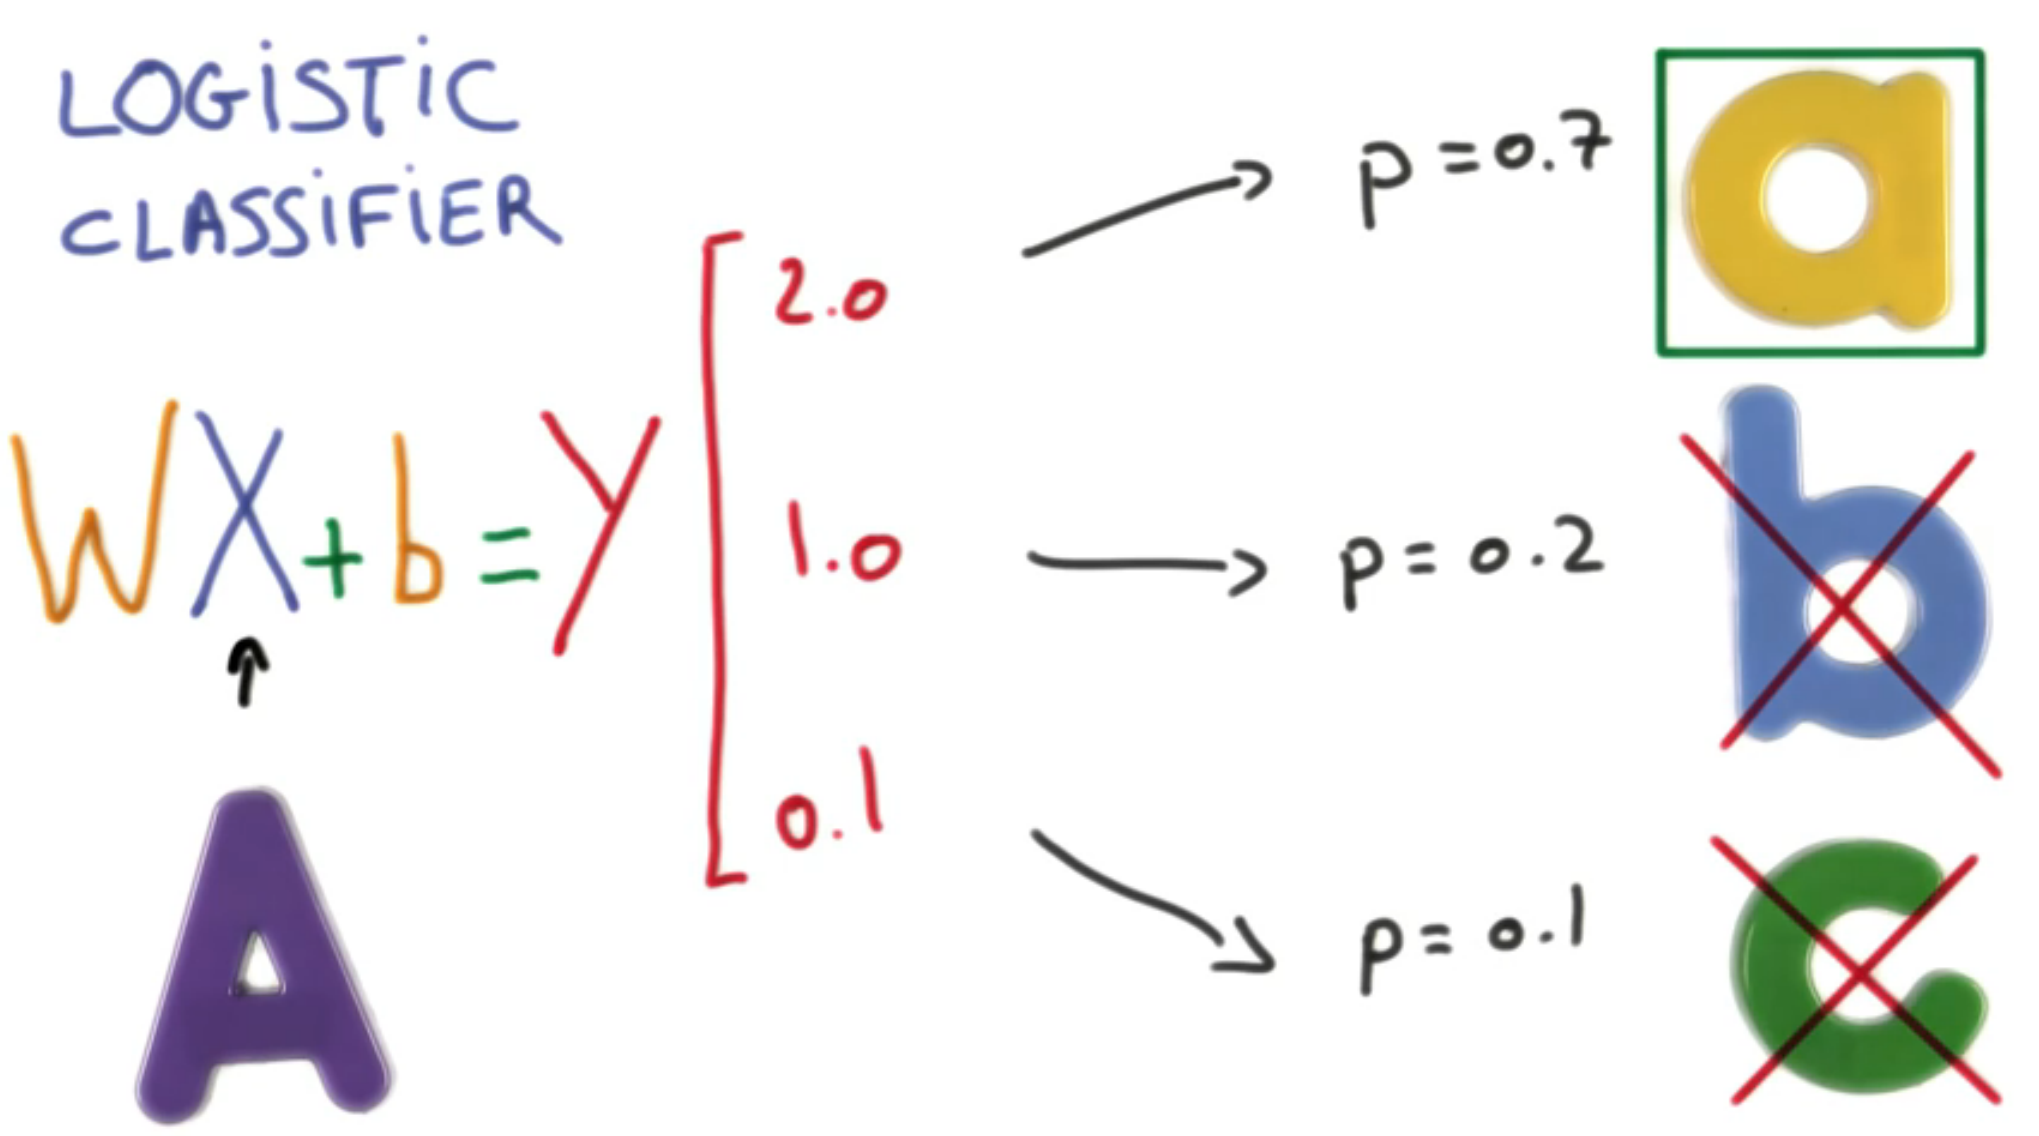 LOGiSTiC
CLASSiFiER
WX+b=Y
2.0
1.0
0.1
p=0.7
p=0.2
p=0.1
a
b
c
A